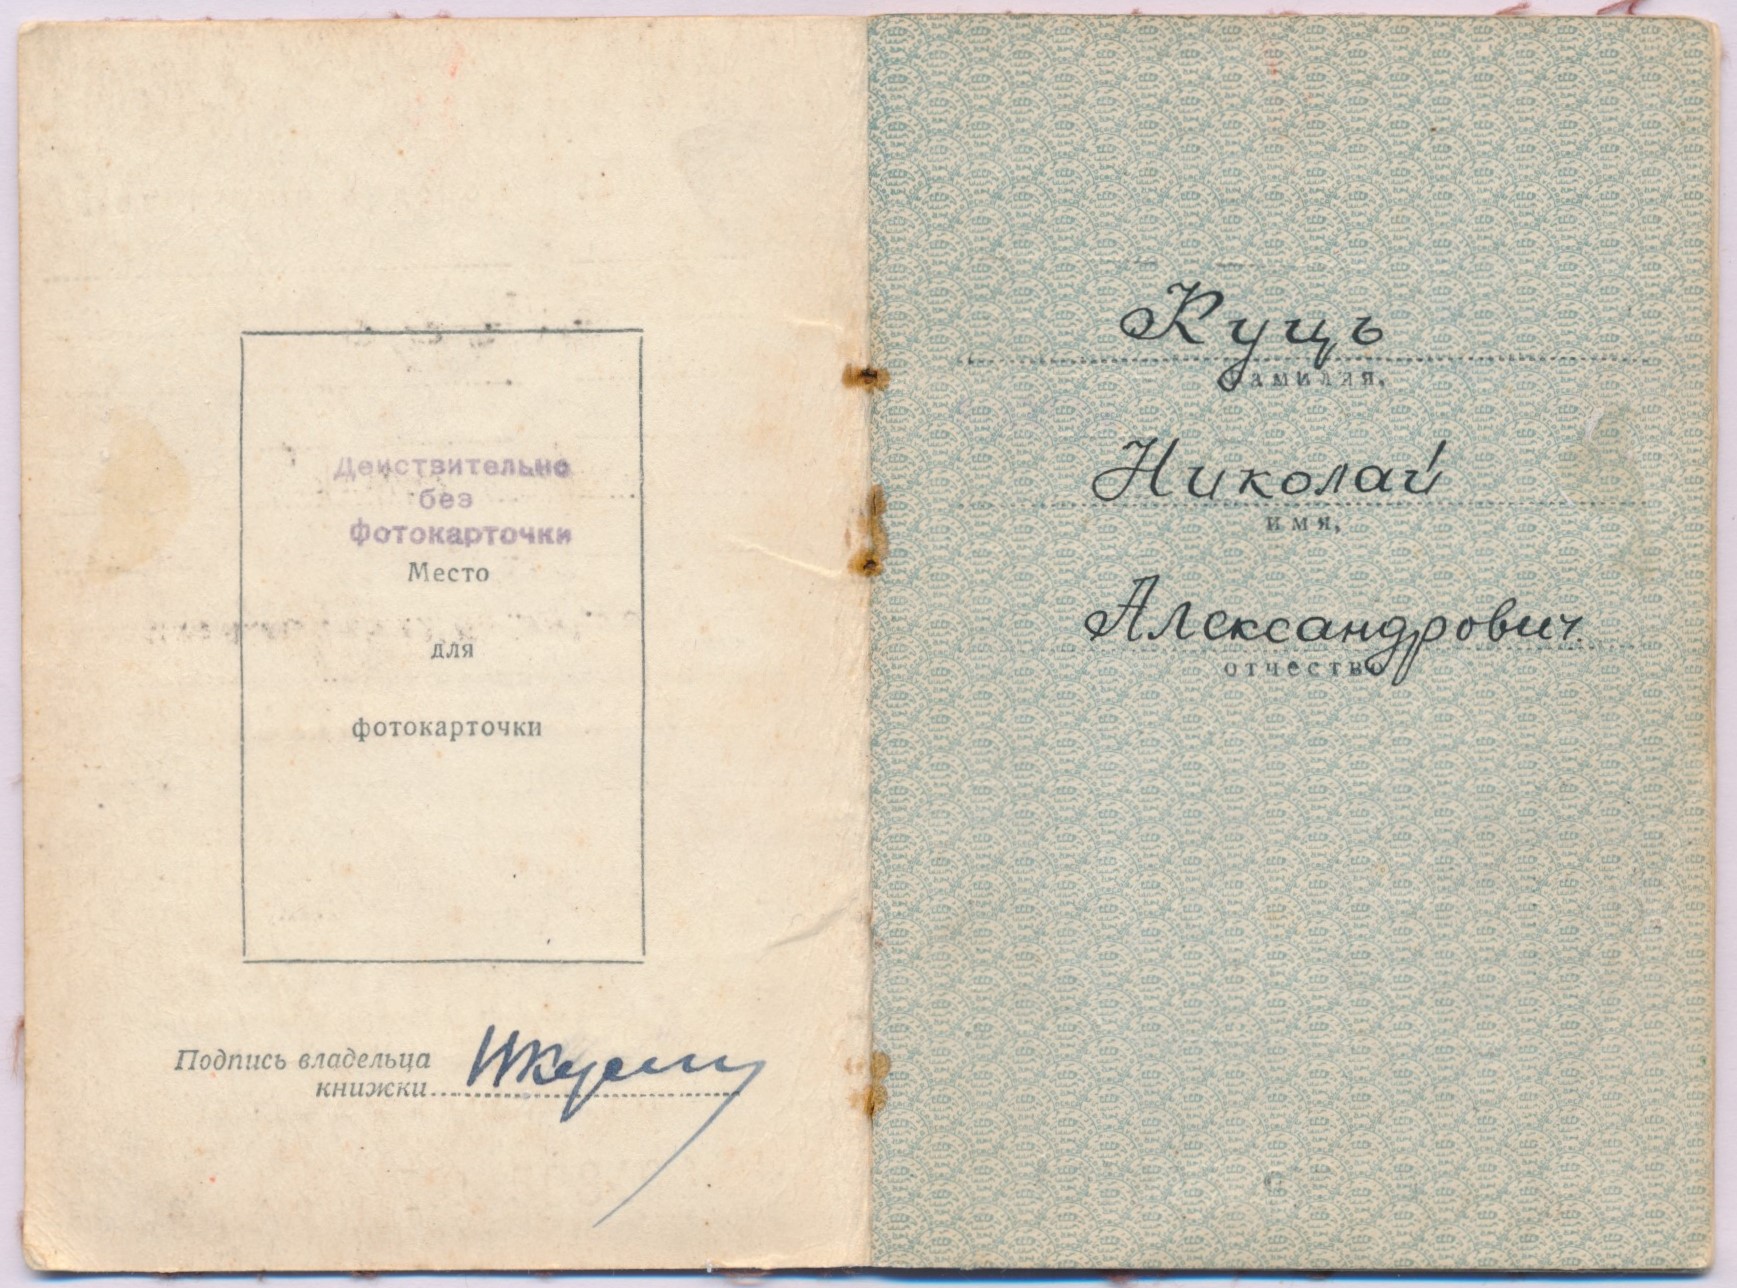 Действительно
без
фотокарточки
Место
для
фотокарточки
Подпись владельца
книжки
Куць
фамилия,
Николай
имя,
Александрович.
отчество